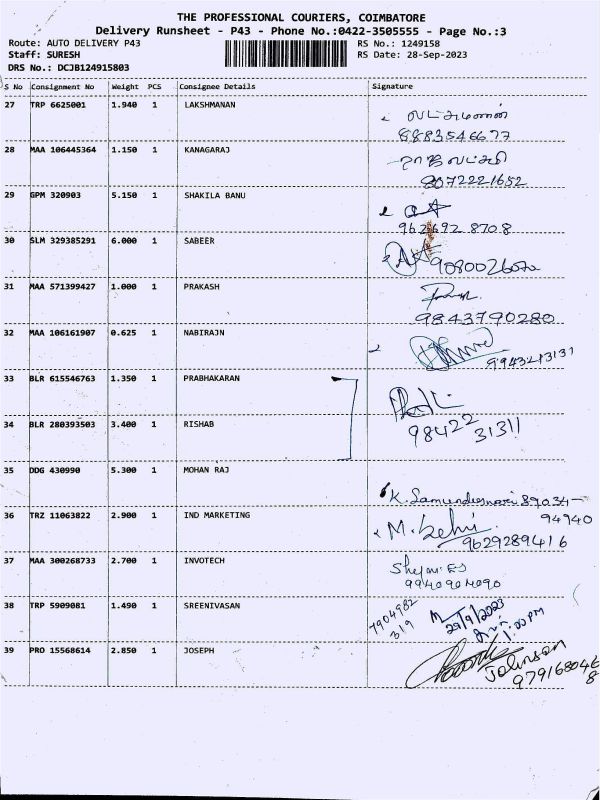 THE PROFESSIONAL COURIERS, COIMBATORE
Delivery Runsheet - P43 - Phone No.:0422-3505555 - Page No.:3
Route: AUTO DELIVERY P43 RS No.: 1249158
Staff: SURESH RS Date: 28-Sep-2023
DRS No.: DCJB124915803
S No Consignment No Weight PCS Consignee Details Signature
27 TRP 6625001 1.940 1 LAKSHMANAN
8883546677
28 MAA 106445364 1.150 1 KANAGARAJ
8072221652
29 GPM 320903 5.150 1 SHAKILA BANU
962692 8708
30 SLM 329385291 6.000 1 SABEER
31 MAA 571399427 1.000 1 PRAKASH
9843790280
32 MAA 106161907 0.625 1 NABIRAJN
9943213131
33 BLR 615546763 1.350 1 PRABHAKARAN
34 BLR 280393503 3.400 1 RISHAB
98422
31311
35 DDG 430990 5.300 1 MOHAN RAJ
89034-
94940
36 TRZ 11063822 2.900 1 IND MARKETING
9629289416
37 MAA 300268733 2.700 1 INVOTECH
9940904090
38 TRP 5909081 1.490 1 SREENIVASAN
7904982
319
29/9/2023
1:00 PM
39 PRO 15568614 2.850 1 JOSEPH
Johnson
979168046
8